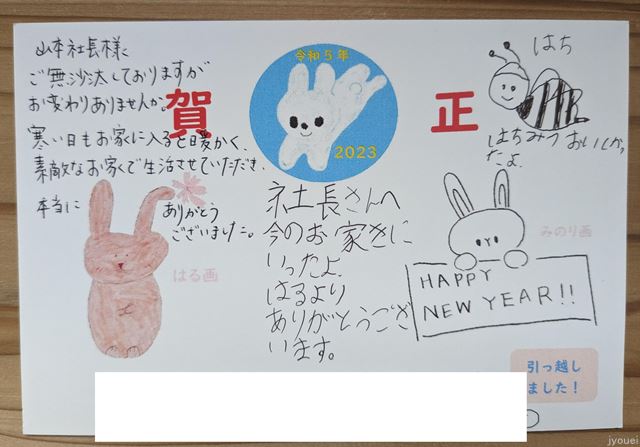 山本社長様に
ご無沙汰しておりますが
お変わりありませんか。
寒い日もお家に入ると暖かく、
素敵なお家で生活させていただき、
本当に
ありがとう
ございました。
はる画
賀
令和5年
2023
正
社長さんへ
今のお家きに
いったよ。
はるより
ありがとうござ
います。
はち
はちみつ おいしかっ
たよ
みのり画
HAPPY
NEW YEAR!!
引っ越し
ました!
jyouei